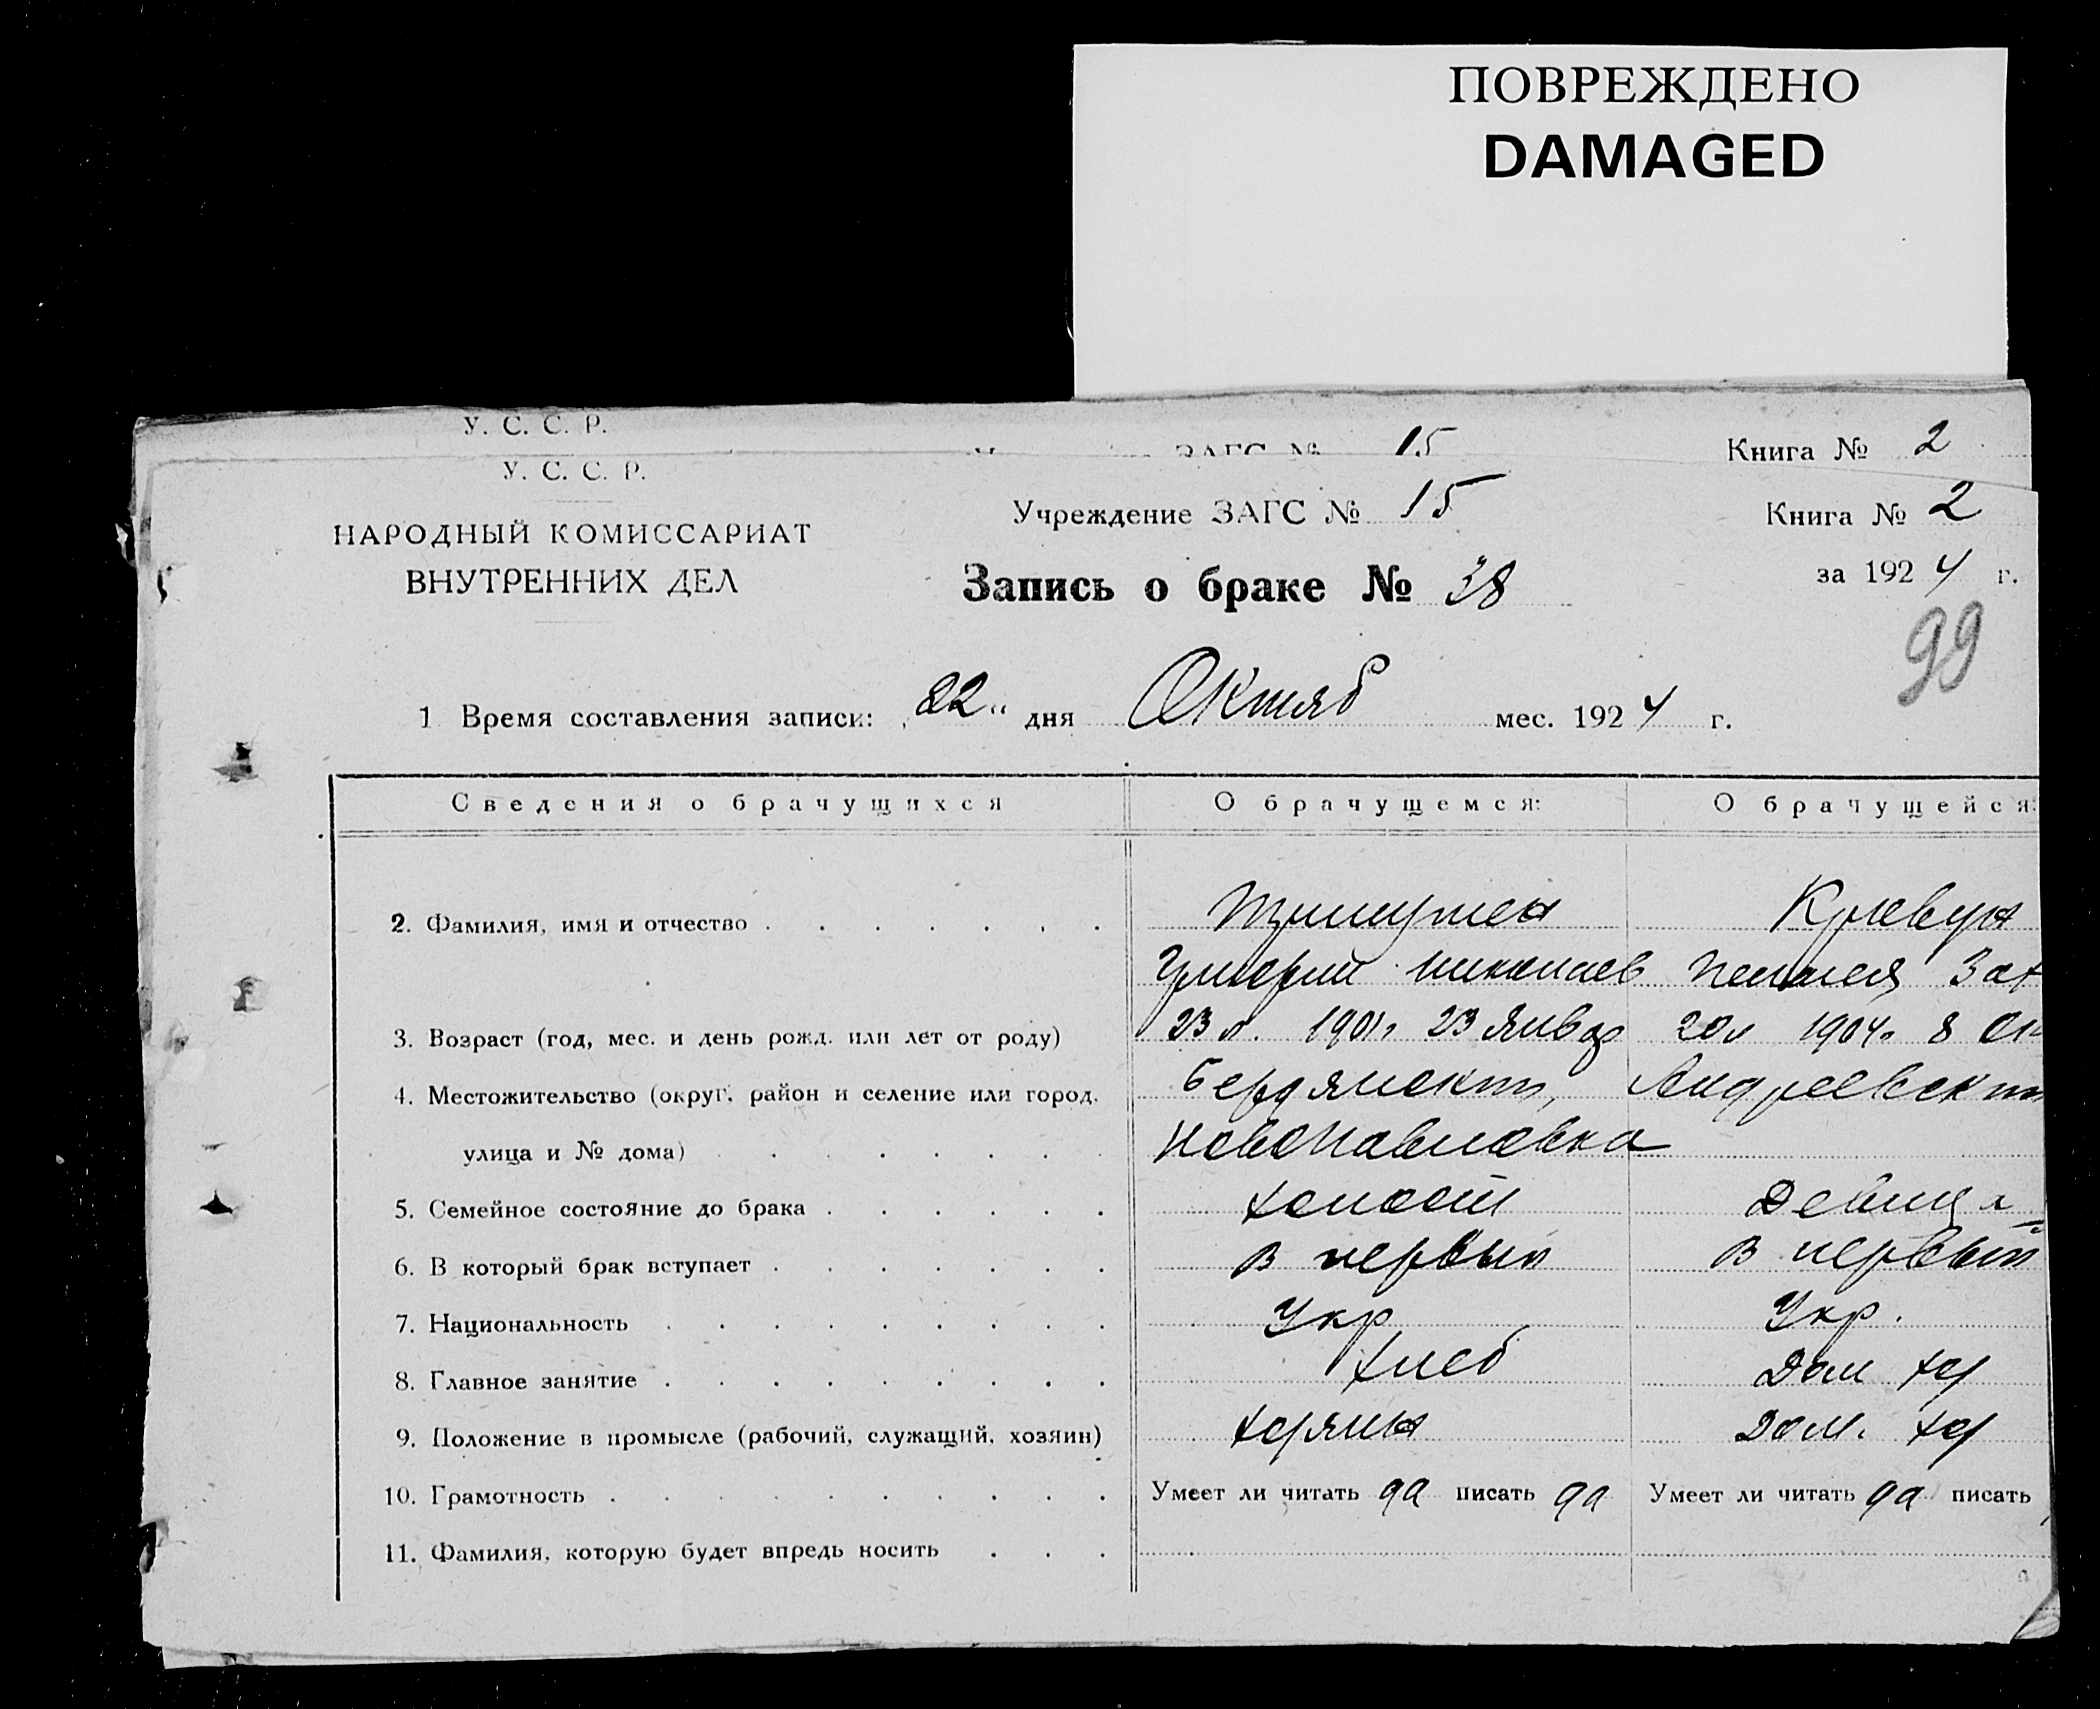 ПОВРЕЖДЕНО
DAMAGED
У. С. С. Р.
ЗАГС № 15
Книга № 2
У. С. С. Р.
НАРОДНЫЙ КОМИССАРИАТ
ВНУТРЕННИХ ДЕЛ
Учреждение ЗАГС № 15
Книга № 2
за 1924 г.
Запись о браке № 38
99
1 Время составления записи: „22“ дня Октяб мес. 1924 г.
Сведения о брачущихся О брачущемся: О брачущейся:
2. Фамилия, имя и отчество Кривуля
Григорий Николаев Пелагея Зах
3. Возраст (год, мес. и день рожд. или лет от роду) 23 л. 1901г 23 Январ 20л 1904г 8 Ок
4. Местожительство (округ, район и селение или город, Бердянский, Андреевский
улица и № дома) Новопавловка
5. Семейное состояние до брака холост Девица
6. В который брак вступает в первый в первый
7. Национальность Укр Укр.
8. Главное занятие хлеб Дом хоз
9. Положение в промысле (рабочий, служащий, хозяин) хозяин Дом. хоз
10. Грамотность Умеет ли читать да писать да Умеет ли читать да писать
11. Фамилия, которую будет впредь носить